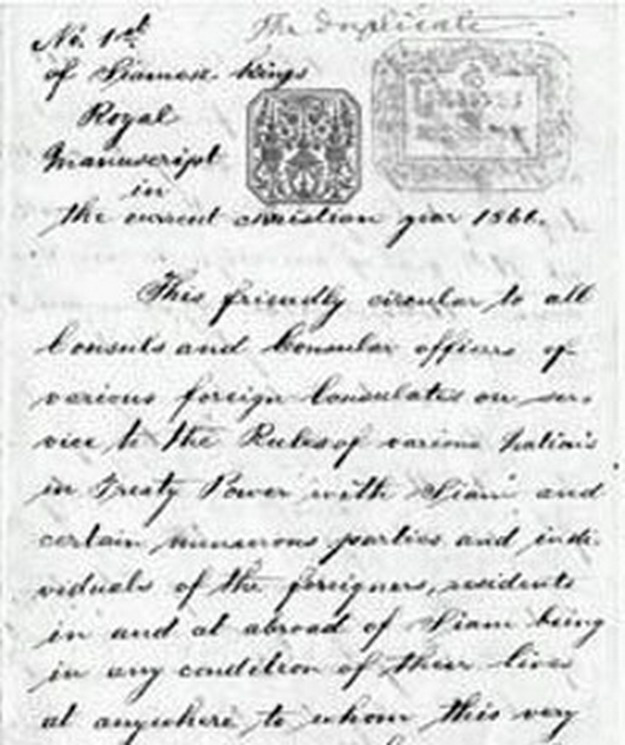 The Duplicate
No. 1st
of Siamese Kings
Royal
Manuscript
in
the current christian year 1866.
This friendly circular to all
Consuls and Consular officers of
various foreign Consulates on ser-
vice to the Rules of various Nations
in Treaty Power with Siam and
certain numerous parties and indi-
viduals of the foreigners, residents
in and at abroad of Siam being
in any condition of their lives
at anywhere to whom this very